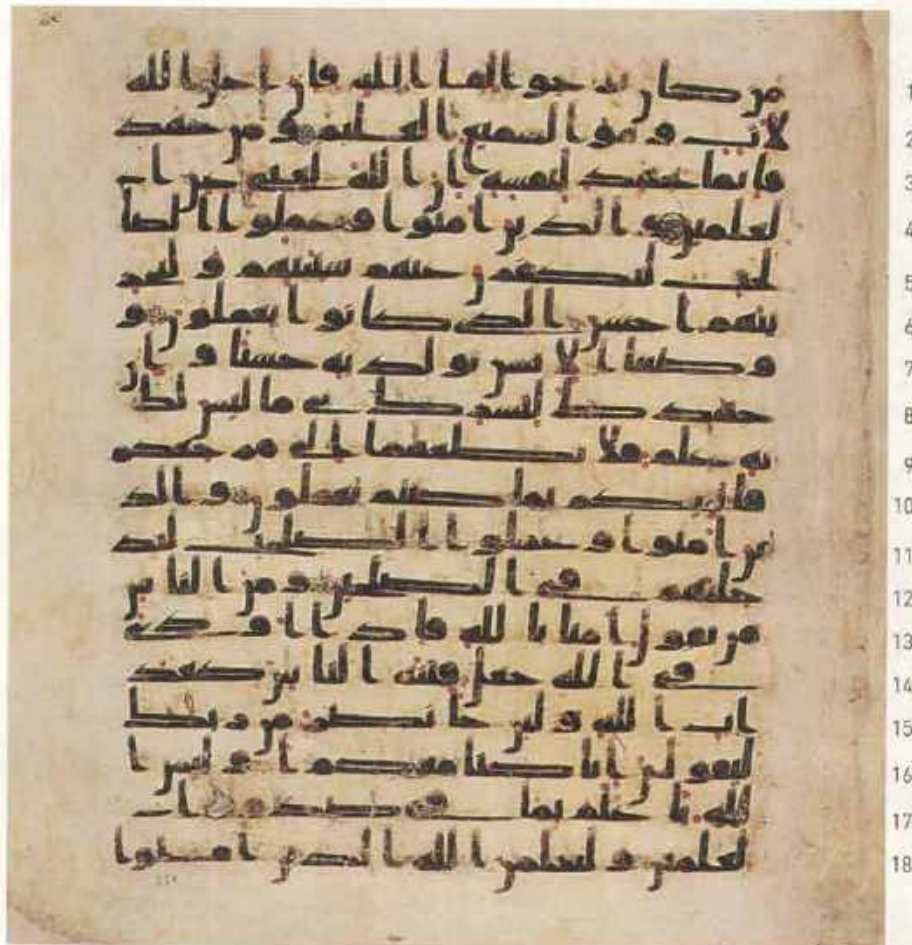 من كان يرجوا لقا الله فان اجل الله 1
لات وهو السميع العليم ومن جهد 2
فانما يجهد لنفسه ان الله لغني عن ا 3
لعلمين والذين امنوا وعملوا الصا 4
لحت لنكفرن عنهم سيتهم ولنجز 5
ينهم احسن الذي كانوا يعملون و 6
وصينا الانسن بولديه حسنا وان 7
جهدك لتشرك بي ما ليس لك 8
به علم فلا تطعهما الي مرجعكم 9
فانبيكم بما كنتم تعملون والذ 10
ين امنوا وعملوا الصلحت لند 11
خلنهم في الصلحين ومن الناس 12
من يقول امنا بالله فاذا اوذي 13
في الله جعل فتنة الناس كعذ 14
اب الله ولين جا نصر من ربك 15
ليقولن انا كنا معكم اوليس ا 16
لله باعلم بما في صدور ا 17
لعلمين وليعلمن الله الذين امنوا 18